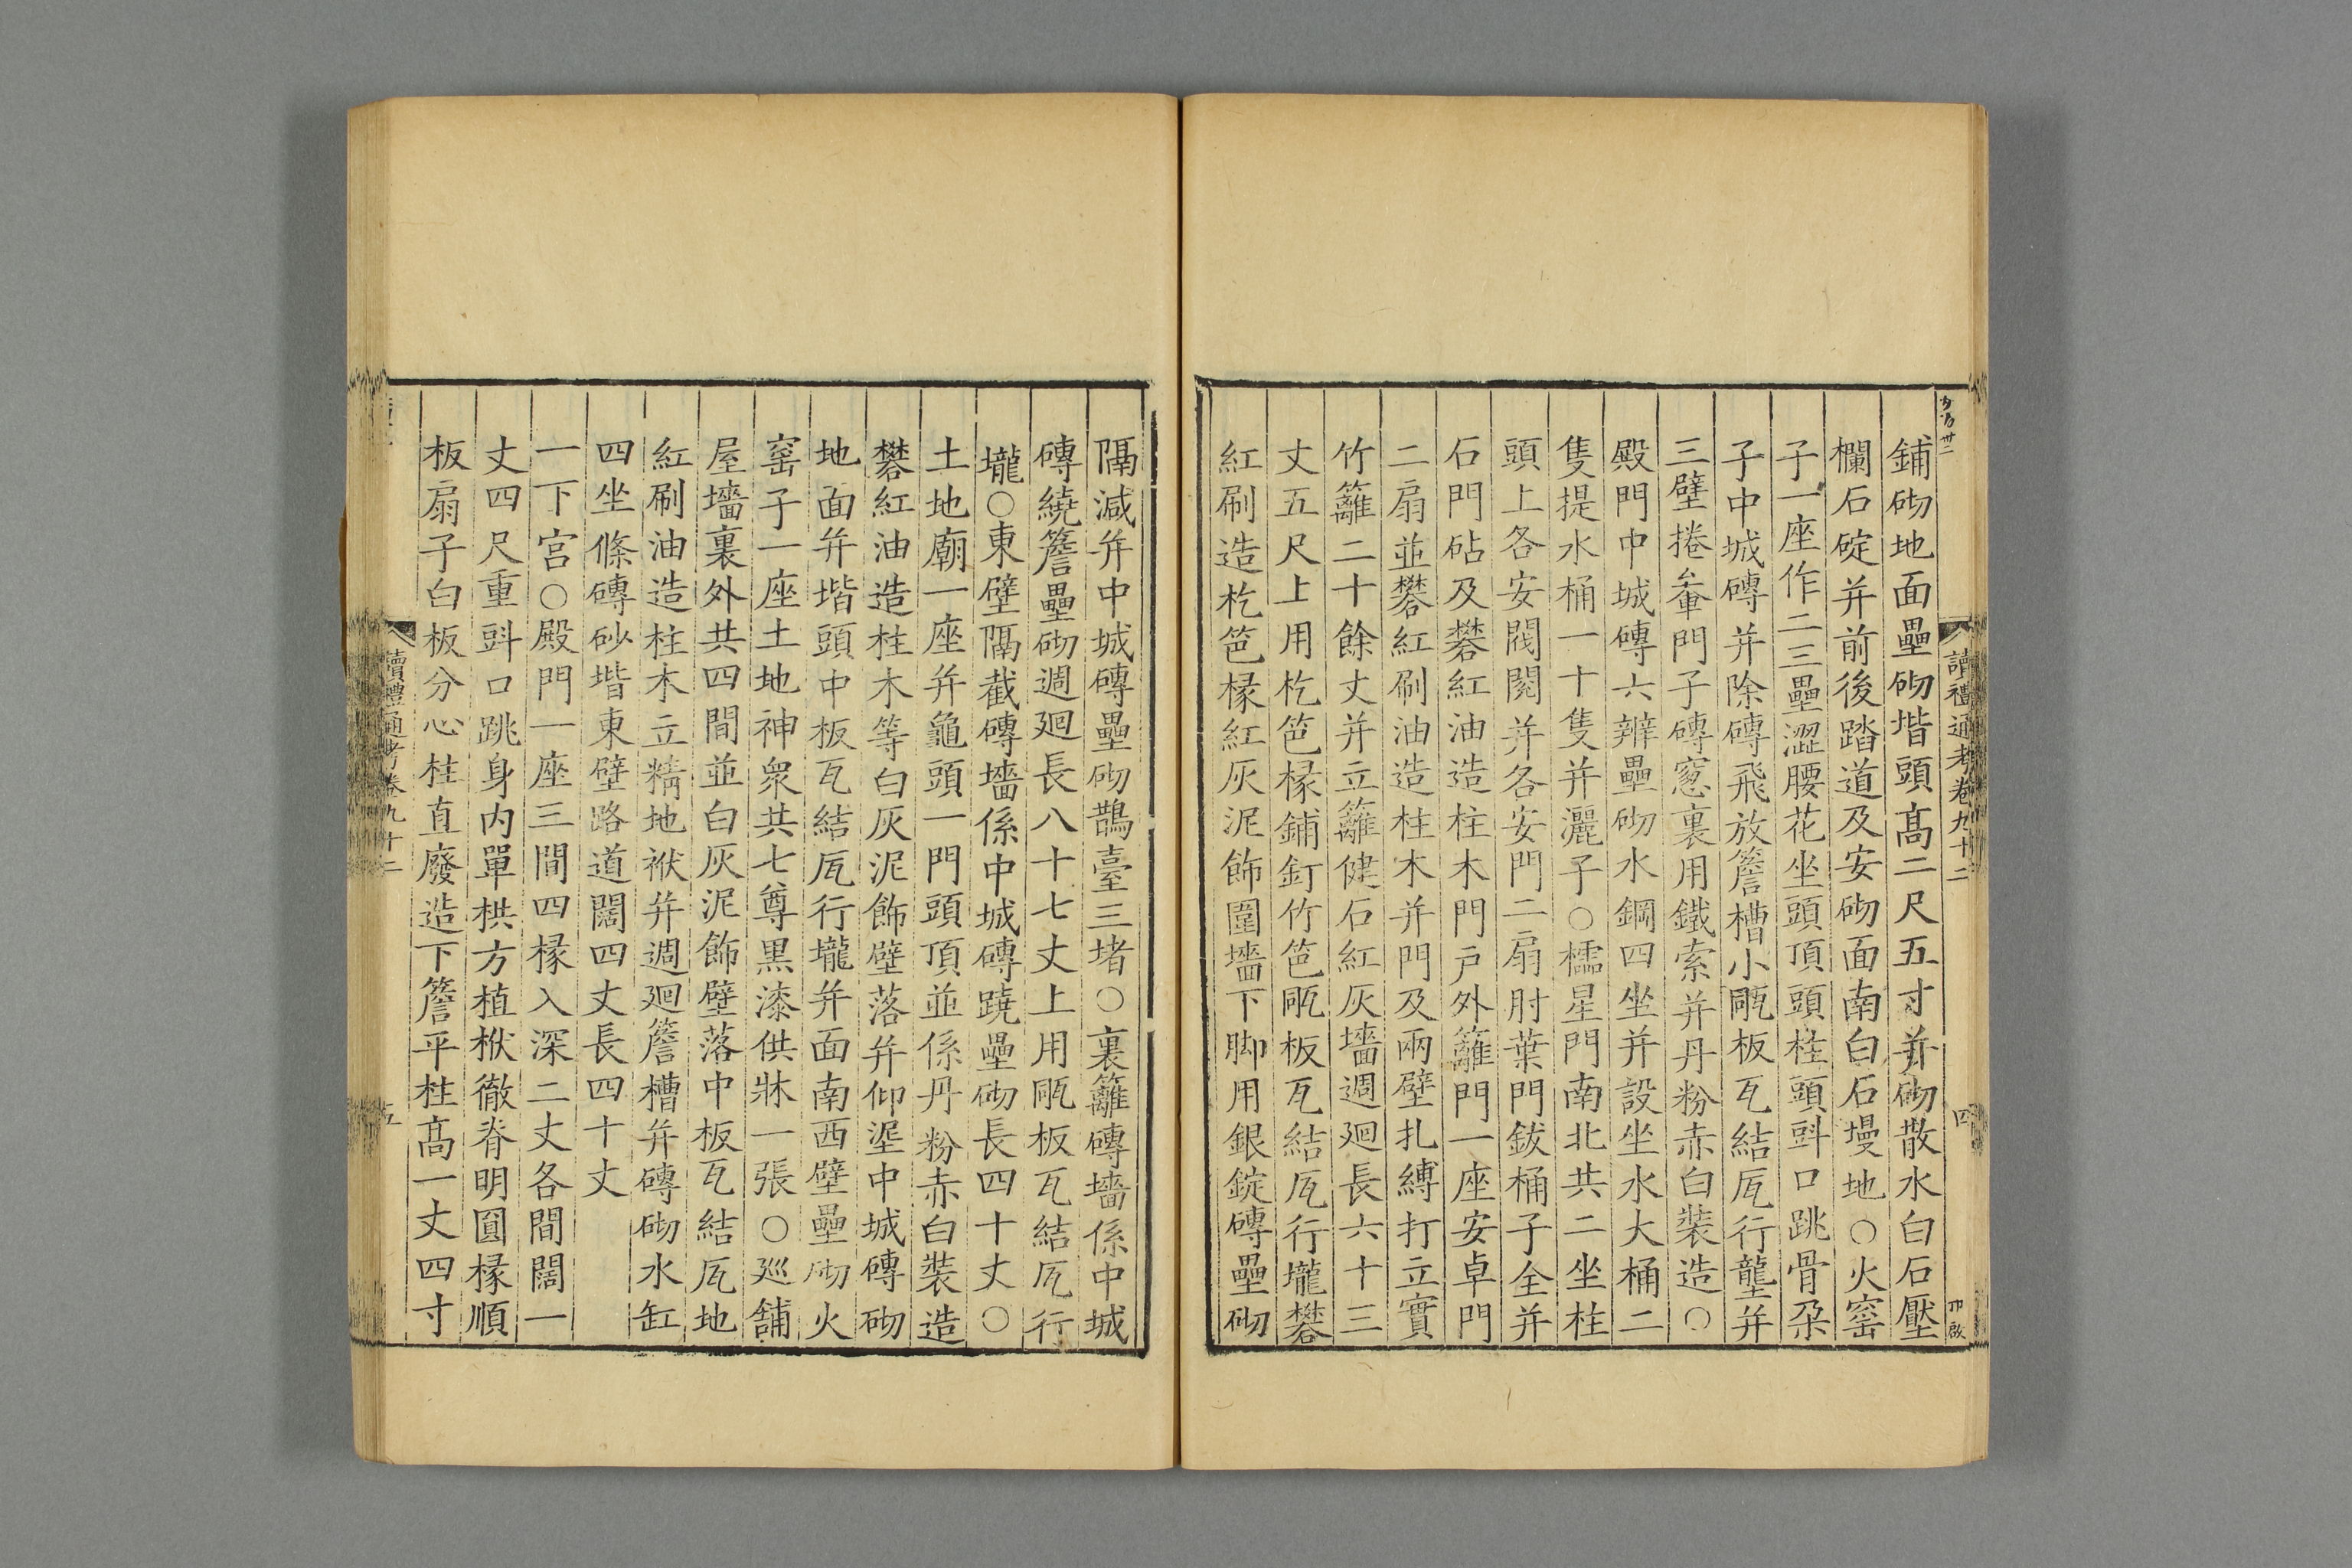 鋪砌地面壘砌堦頭高二尺五寸并砌散水白石壓
欄石碇并前後踏道及安砌面南白石墁地○火窰
子一座作二三壘澀腰花坐頭頂頭柱頭斗口跳骨朶
子中城磚并除磚飛放簷槽小㼧板瓦結㼧行壟并
三壁捲輂門子磚窻裏用鐵索并丹粉赤白裝造○
殿門中城磚六辨壘砌水鋼四坐并設坐水大桶二
隻提水桶一十隻并灑子○櫺星門南北共二坐柱
頭上各安閥閱并各安門二扇肘葉門鈸桶子全并
石門砧及礬紅油造柱木門戶外籬門一座安卓門
二扇並礬紅刷油造柱木并門及兩壁扎縛打立實
竹籬二十餘丈并立籬健石紅灰墻週廻長六十三
丈五尺上用杚笆椽鋪釘竹笆㼧板瓦結㼧行壠礬
紅刷造杚笆椽紅灰泥飾圍墻下脚用銀錠磚壘砌
讀禮通考卷九十二
四
隔減并中城磚壘砌鵲臺三堵○裏籬磚墻係中城
磚繞簷壘砌週廻長八十七丈上用㼧板瓦結㼧行
壠○東壁隔截磚墻係中城磚蹺壘砌長四十丈○
土地廟一座并龜頭一門頭頂並係丹粉赤白裝造
礬紅油造柱木等白灰泥飾壁落并仰塰中城磚砌
地面并堦頭中板瓦結㼧行壠并面南西壁壘砌火
窰子一座土地神眾共七尊黑漆供牀一張○廵舖
屋墻裏外共四間並白灰泥飾壁落中板瓦結㼧地
紅刷油造柱木立精地袱并週廻簷槽并磚砌水缸
四坐條磚砂堦東壁路道闊四丈長四十丈
一下宮○殿門一座三間四椽入深二丈各間闊一
丈四尺重斗口跳身內單栱方植栿徹脊明圓椽順
板扇子白板分心柱直廢造下簷平柱高一丈四寸
讀禮通考卷九十二
五